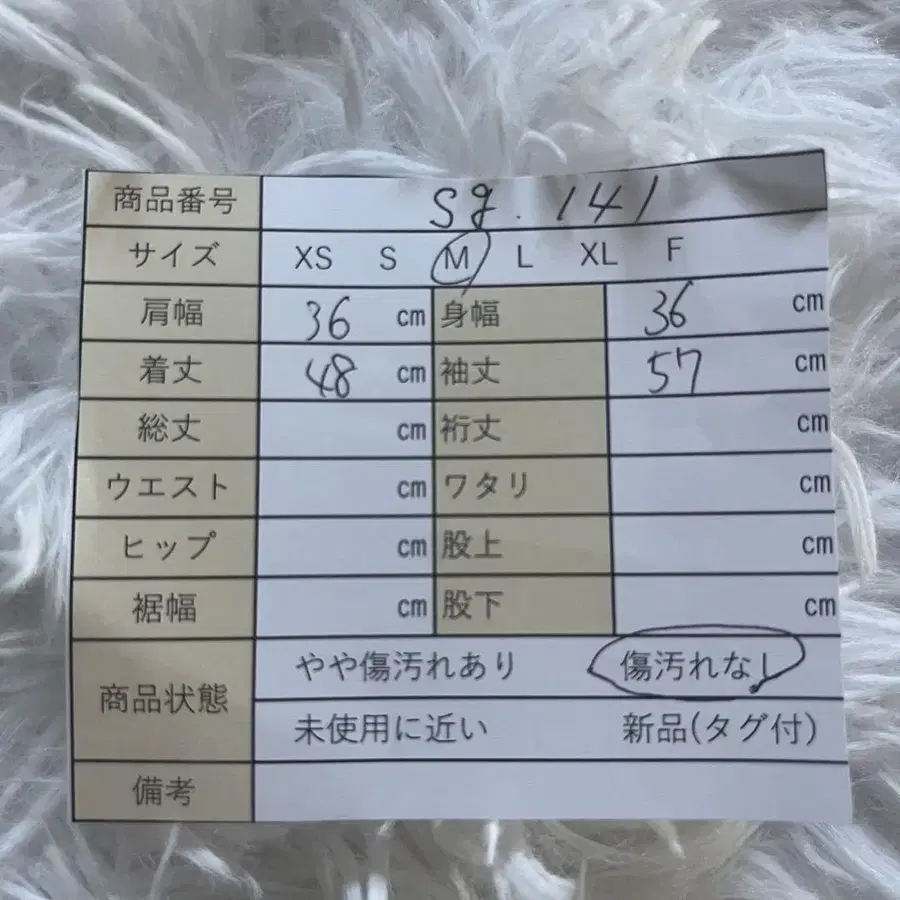 商品番号 sg. 141
サイズ XS S M L XL F
肩幅 36 cm 身幅 36 cm
着丈 48 cm 袖丈 57 cm
総丈 cm 裄丈 cm
ウエスト cm ワタリ cm
ヒップ cm 股上 cm
裾幅 cm 股下 cm
商品状態 やや傷汚れあり 傷汚れなし
未使用に近い 新品(タグ付)
備考